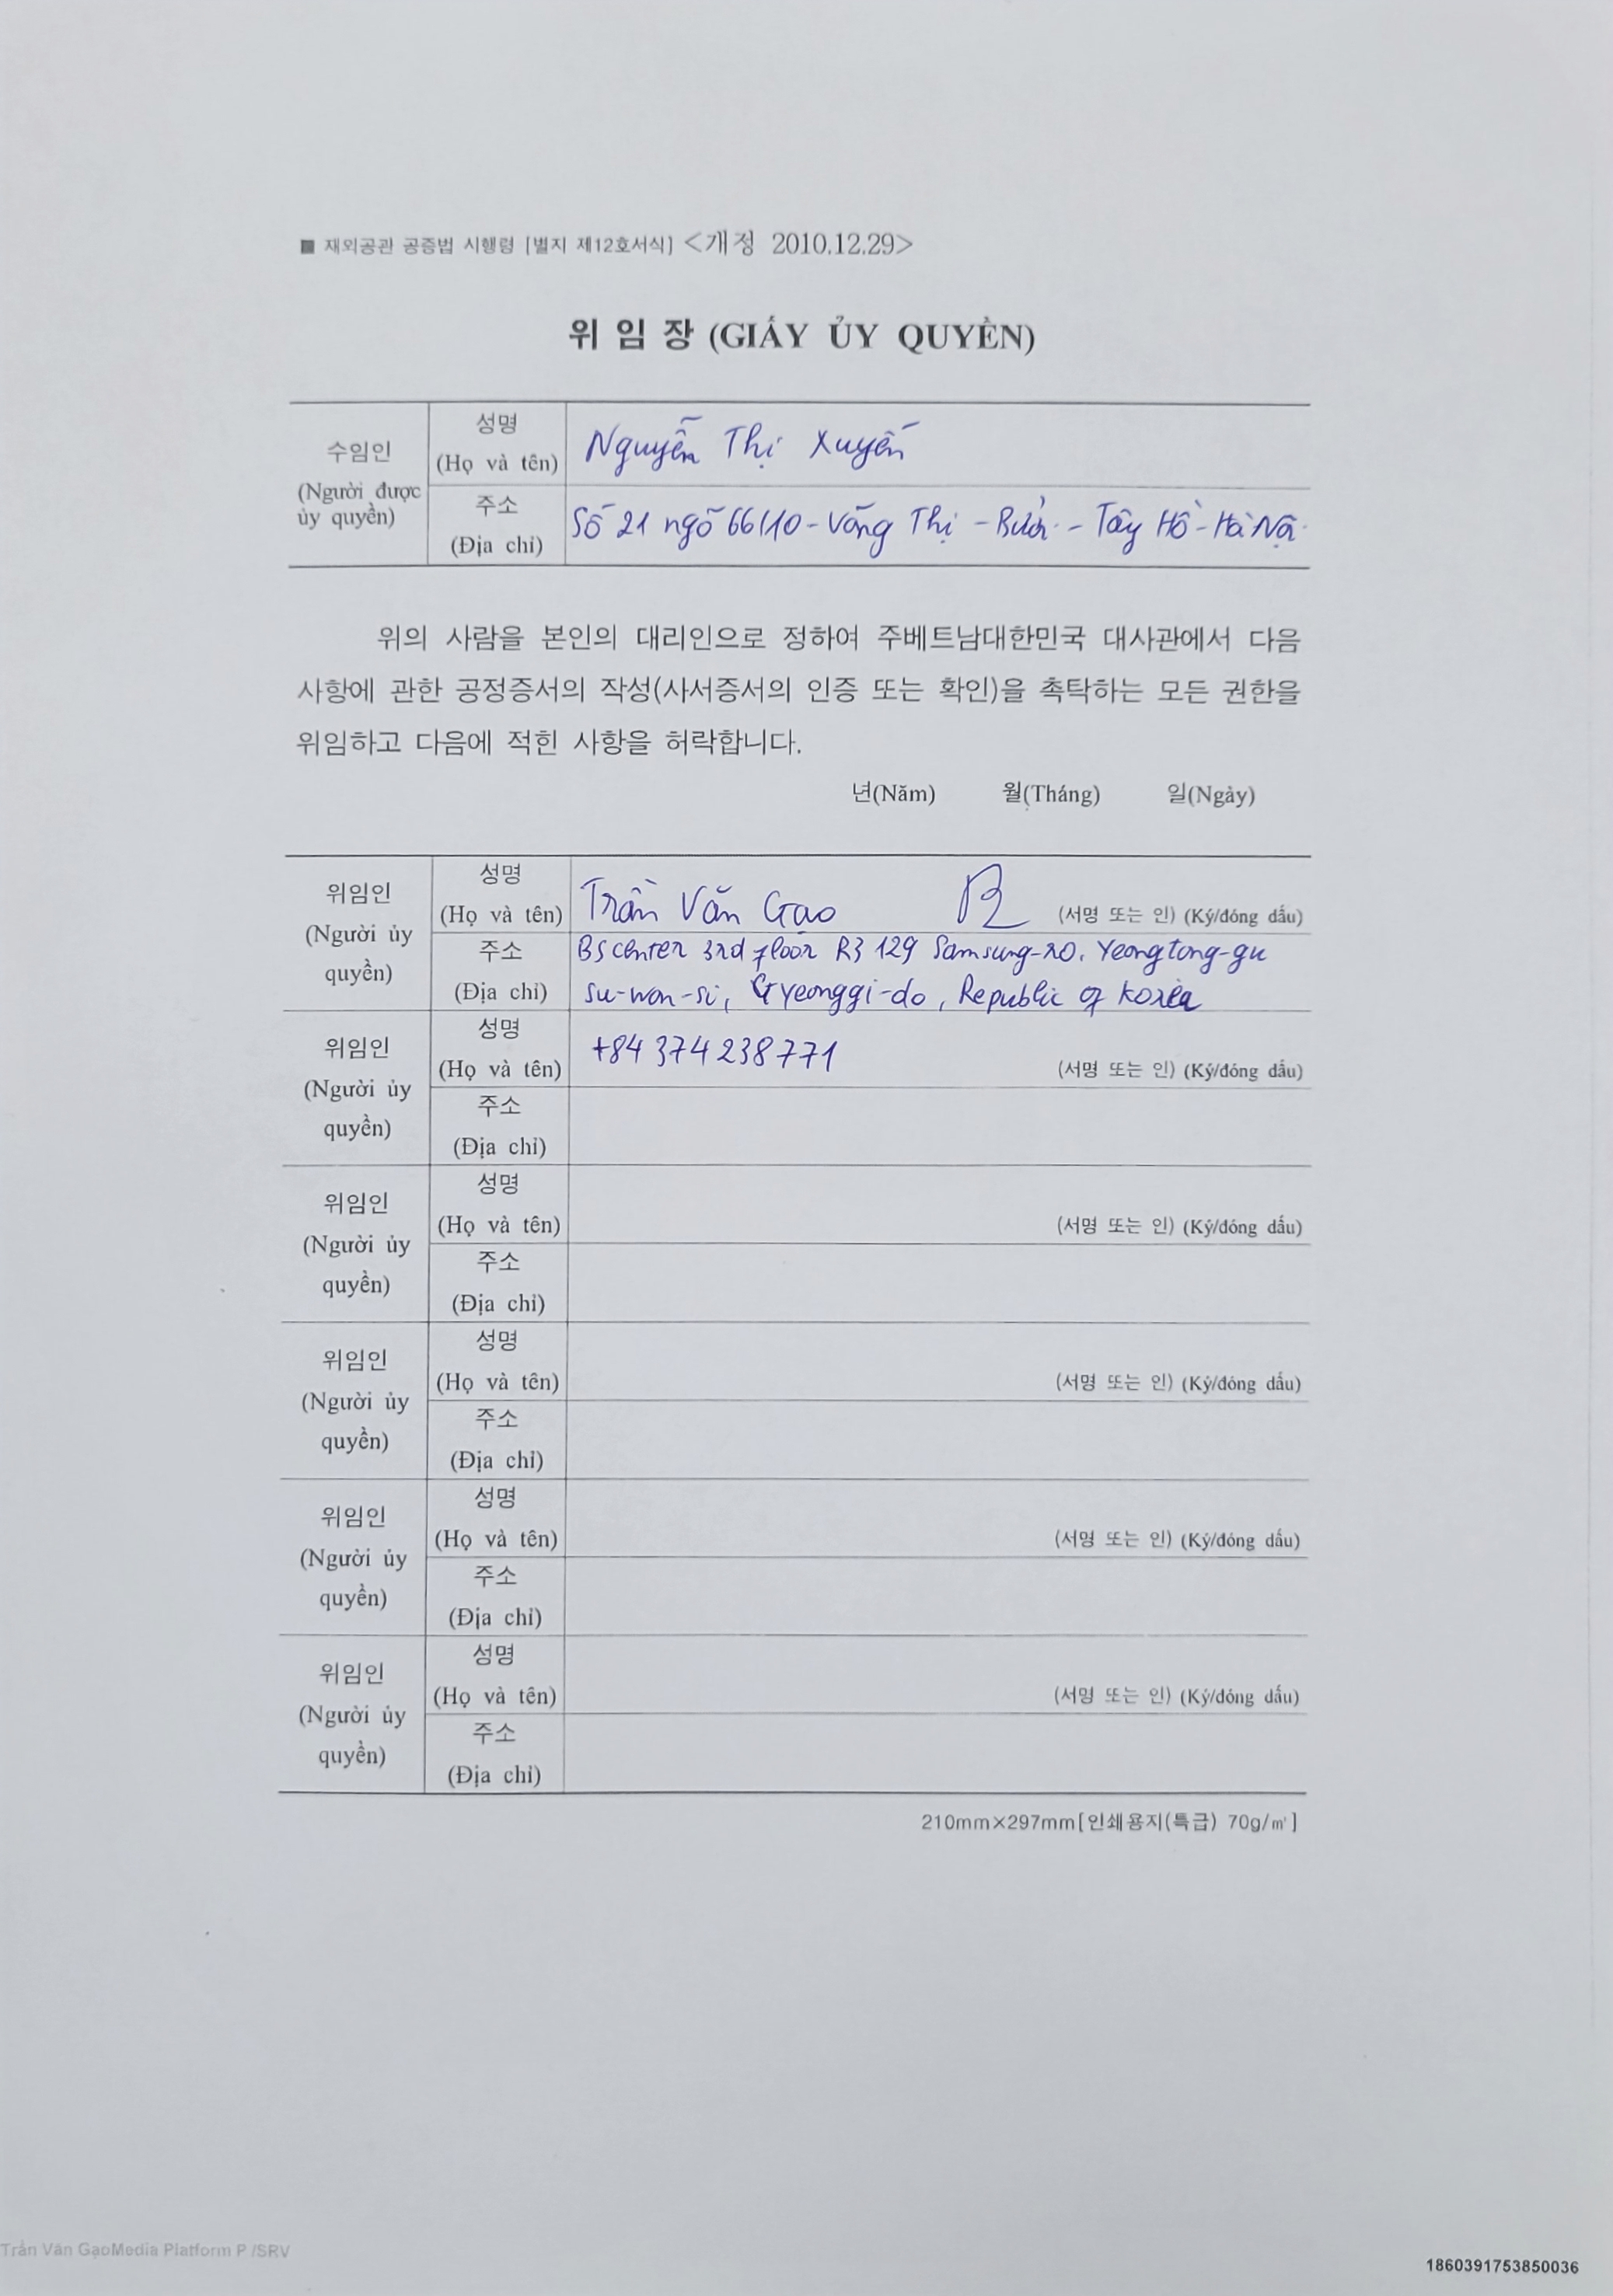 ■ 재외공관 공증법 시행령 [별지 제12호서식] <개정 2010.12.29>
위 임 장 (GIẤY ỦY QUYỀN)
수임인
(Người được
ủy quyền)
성명
(Họ và tên)
Nguyễn Thị Xuyến
주소
(Địa chỉ)
Số 21 ngõ 66/10 - Võng Thị - Bưởi - Tây Hồ - Hà Nội
위의 사람을 본인의 대리인으로 정하여 주베트남대한민국 대사관에서 다음
사항에 관한 공정증서의 작성(사서증서의 인증 또는 확인)을 촉탁하는 모든 권한을
위임하고 다음에 적힌 사항을 허락합니다.
년(Năm) 월(Tháng) 일(Ngày)
위임인
(Người ủy
quyền)
성명
(Họ và tên)
Trần Văn Gạo (서명 또는 인) (Ký/đóng dấu)
주소
(Địa chỉ)
BS center 3rd floor R3 129 Samsung-ro, Yeongtong-gu
Su-won-si, Gyeonggi-do, Republic of Korea
위임인
(Người ủy
quyền)
성명
(Họ và tên)
+84 374 238 771 (서명 또는 인) (Ký/đóng dấu)
주소
(Địa chỉ)
위임인
(Người ủy
quyền)
성명
(Họ và tên)
(서명 또는 인) (Ký/đóng dấu)
주소
(Địa chỉ)
위임인
(Người ủy
quyền)
성명
(Họ và tên)
(서명 또는 인) (Ký/đóng dấu)
주소
(Địa chỉ)
위임인
(Người ủy
quyền)
성명
(Họ và tên)
(서명 또는 인) (Ký/đóng dấu)
주소
(Địa chỉ)
위임인
(Người ủy
quyền)
성명
(Họ và tên)
(서명 또는 인) (Ký/đóng dấu)
주소
(Địa chỉ)
210mm×297mm[인쇄용지(특급) 70g/㎡]
Trần Văn GạoMedia Platform P /SRV
1860391753850036